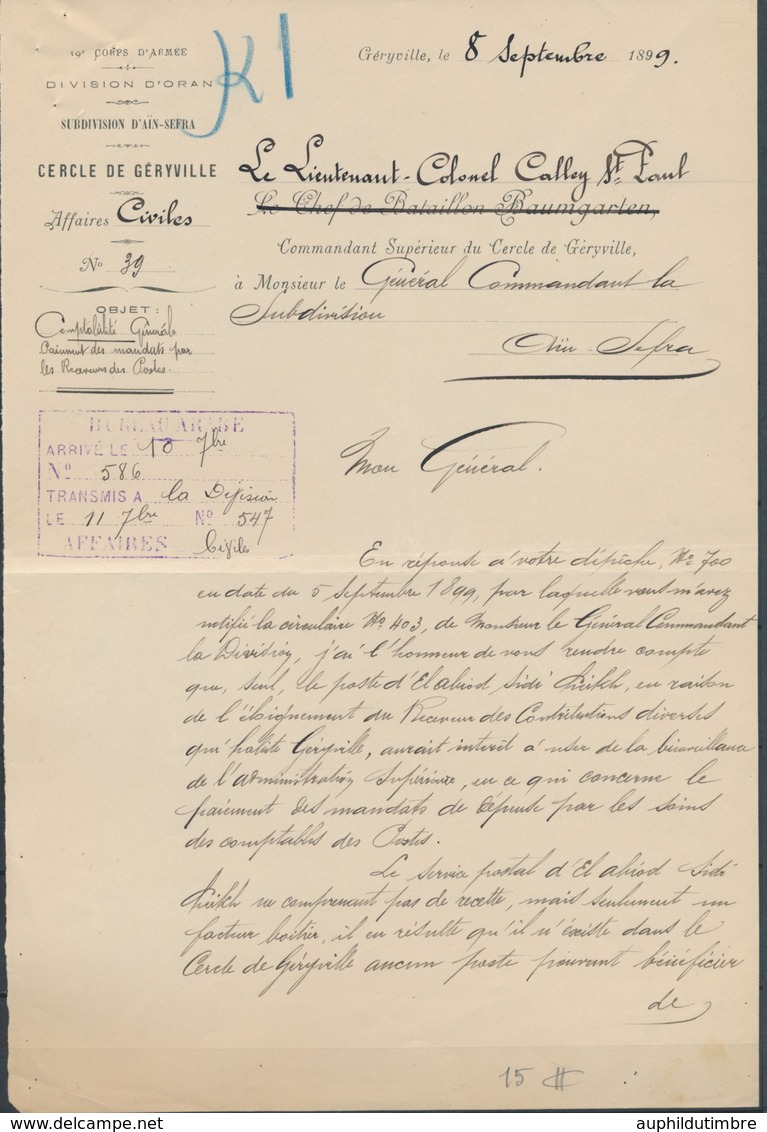 19e CORPS D'ARMÉE
DIVISION D'ORAN
SUBDIVISION D'AÏN-SEFRA
CERCLE DE GÉRYVILLE
Affaires Civiles
No 39
OBJET:
Comptabilité Générale
Paiement des mandats par
les Receveurs des Postes.
K1
Géryville, le 8 Septembre 1899.
Le Lieutenant-Colonel Calley St. Paul
Le Chef de Bataillon Baumgarten,
Commandant Supérieur du Cercle de Géryville,
à Monsieur le Général Commandant la
Subdivision
Aïn-Sefra
BUREAU ARABE
ARRIVÉ LE 10 7bre
No 586
TRANSMIS A la Division
LE 11 7bre No 547
AFFAIRES Civiles
Mon Général.
En réponse à votre dépêche, No 700
en date du 5 Septembre 1899, par laquelle vous m'avez
notifié la circulaire No 403, de Monsieur le Général Commandant
la Division, j'ai l'honneur de vous rendre compte
que, seul, le poste d'El abiod Sidi Cheikh, en raison
de l'éloignement du Receveur des Contributions diverses
qui habite Géryville, aurait intérêt à user de la bienveillance
de l'administration Supérieure, en ce qui concerne le
paiement des mandats de dépense par les soins
des comptables des Postes.
Le service postal d'El abiod Sidi
Cheikh ne comprenant pas de recette, mais seulement un
facteur boitier, il en résulte qu'il n'éxiste dans le
Cercle de Géryville aucun poste pouvant bénéficier
de
15
auphildutimbre.com